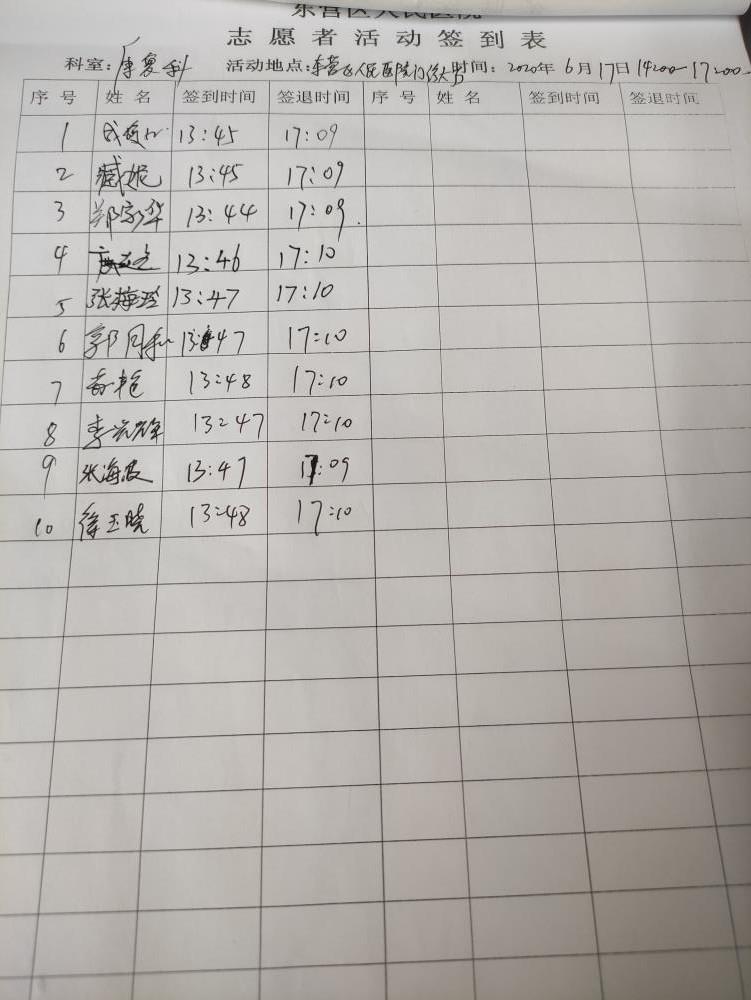 东营区人民医院
志愿者活动签到表
科室：康复科 活动地点：东营区人民医院门诊大厅 时间：2020年6月17日14:00-17:00
序号 姓名 签到时间 签退时间 序号 姓名 签到时间 签退时间
1 13:45 17:09
2 臧妮 13:45 17:09
3 郑家华 13:44 17:09.
4 13:46 17:10
5 张梅玲 13:47 17:10
6 郭月 13:47 17:10
7 13:48 17:10
8 李 13:47 17:10
9 张海波 13:47 17:09
10 徐玉晓 13:48 17:10